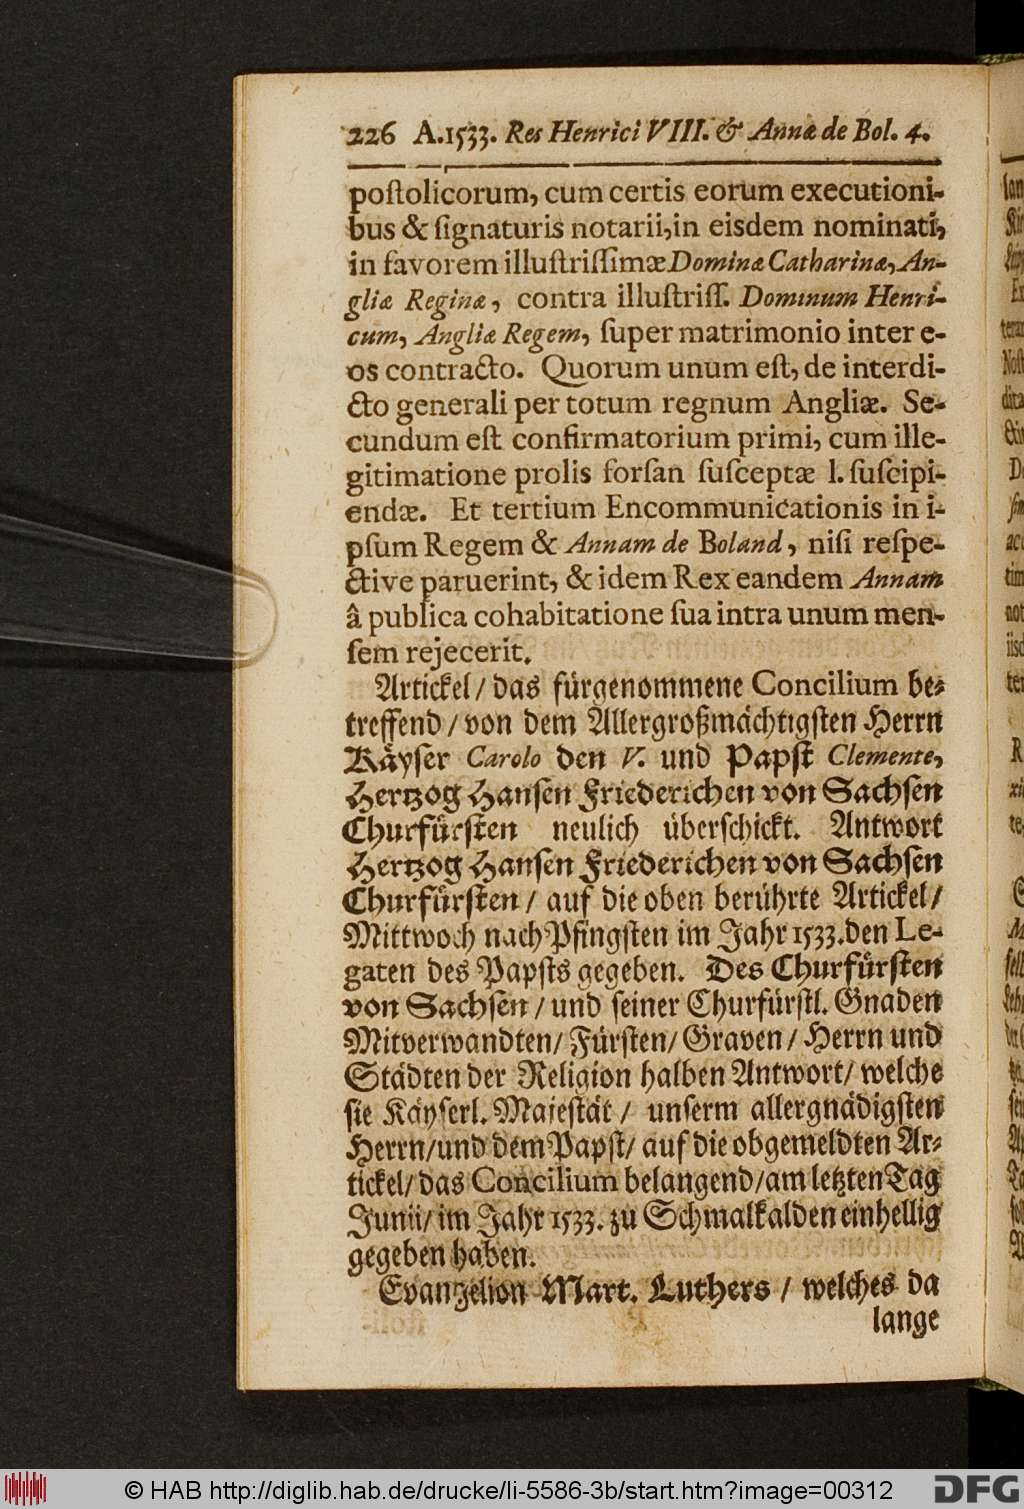 226 A.1533. Res Henrici VIII. & Annæ de Bol. 4.
poſtolicorum, cum certis eorum executioni-
bus & ſignaturis notarii, in eisdem nominati,
in favorem illuſtriſſimæ Dominæ Catharinæ, An-
gliæ Reginæ, contra illuſtriſſ. Dominum Henri-
cum, Angliæ Regem, ſuper matrimonio inter e-
os contracto. Quorum unum eſt, de interdi-
cto generali per totum regnum Angliæ. Se-
cundum eſt confirmatorium primi, cum ille-
gitimatione prolis forſan ſuſceptæ l. ſuſcipi-
endæ. Et tertium Encommunicationis in i-
pſum Regem & Annam de Boland, niſi reſpe-
ctive paruerint, & idem Rex eandem Annam
â publica cohabitatione ſua intra unum men-
ſem rejecerit.
Artickel / das fürgenommene Concilium be-
treffend / von dem Allergroßmächtigſten Herrn
Käyſer Carolo den V. und Papſt Clemente,
Hertzog Hanſen Friederichen von Sachſen
Churfürſten neulich überſchickt. Antwort
Hertzog Hanſen Friederichen von Sachſen
Churfürſten / auf die oben berührte Artickel /
Mittwoch nach Pfingſten im Jahr 1533. den Le-
gaten des Papſts gegeben. Des Churfürſten
von Sachſen / und ſeiner Churfürſtl. Gnaden
Mitverwandten / Fürſten / Graven / Herrn und
Städten der Religion halben Antwort / welche
ſie Käyſerl. Majeſtät / unſerm allergnädigſten
Herrn / und dem Papſt / auf die obgemeldten Ar-
tickel / das Concilium belangend / am letzten Tag
Junii / im Jahr 1533. zu Schmalkalden einhellig
gegeben haben.
Evangelion Mart. Luthers / welches da
lange
© HAB http://diglib.hab.de/drucke/li-5586-3b/start.htm?image=00312
DFG